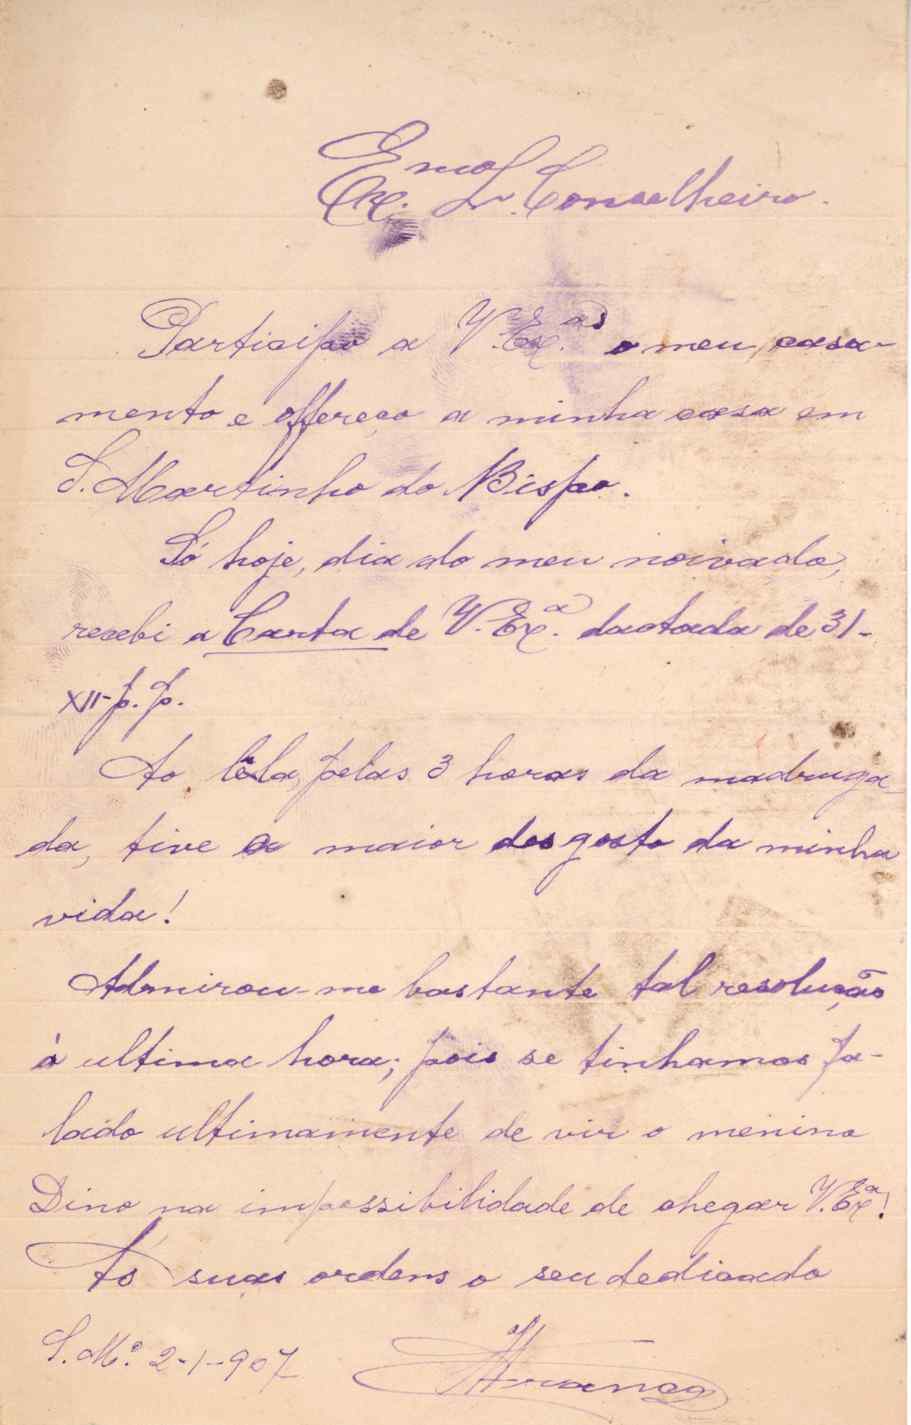 Exmo Sr. Conselheiro.
Participo a V. Ex.as o meu casa-
mento e offereço a minha casa em
S. Martinho do Bispo.
Só hoje, dia do meu noivado,
recebi a Carta de V. Ex.a dactada de 31-
XII-p.p.
Ao lêla, pelas 3 horas da madruga-
da, tive o maior desgosto da minha
vida!
Admirou-me bastante tal resolução
á ultima hora; pois se tinhamos fa-
lado ultimamente de vir o menino
Dino, na impossibilidade de chegar V. Exa!
Ás suas ordens o seu dedicado
S. M.o 2-1-907